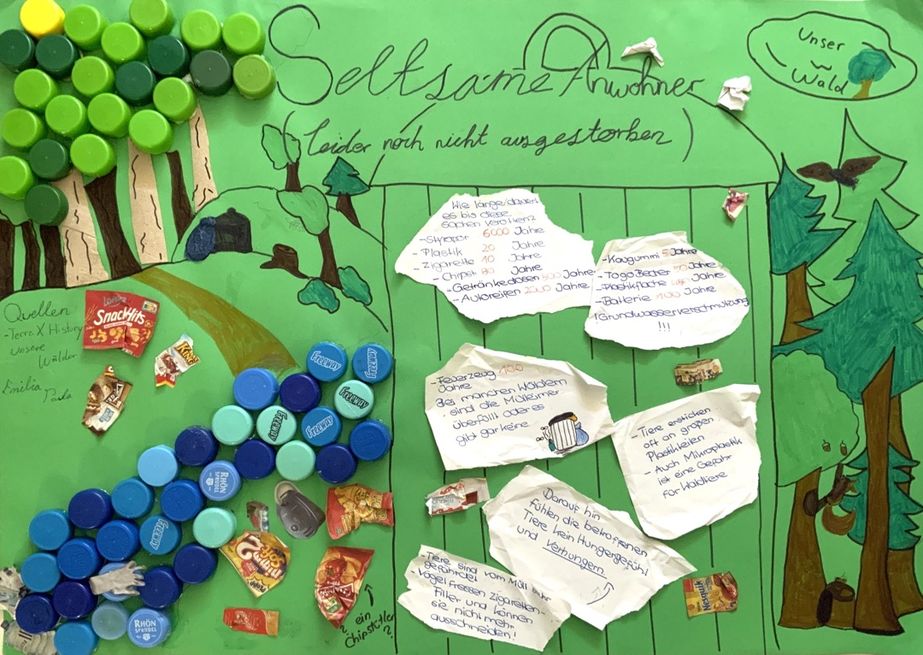 Seltsame Anwohner
(leider noch nicht ausgestorben)
Unser
Wald
Wie lange dauert
es bis diese
Sachen verrotten?
- Styropor 6000 Jahre
- Plastik 20 Jahre
- Zigarette 10 Jahre
- Chipst. 80 Jahre
- Getränkedosen Jahre
- Autoreifen 2000 Jahre
- Kaugummi 5 Jahre
- Togo Becher 50 Jahre
- Plastikflasche Jahre
- Batterie 100 Jahre
! Grundwasserverschmutzung
!!!
- Feuerzeug 100
Jahre
Bei manchen Wäldern
sind die Mülleimer
überfüllt oder es
gibt gar keine.
- Tiere ersticken
oft an großen
Plastikteilen
- Auch Mikroplastik
ist eine Gefahr
für Waldtiere
Darauf hin
fühlen die betroffenen
Tiere kein Hungergefühl
und verhungern
- Tiere sind vom Müll
gefährdet
Vögel fressen Zigaretten-
Filter und können
sie nicht mehr
ausscheiden!
Quellen
- Terra X History
unsere
Wälder
Emilia
Paula
Lorenz
SnackHits
FREEWAY
FREEWAY
FREEWAY
FREEWAY
FREEWAY
RHÖN
SPRUDEL
FREEWAY
RHÖN
SPRUDEL
ein
Chipstüten
?